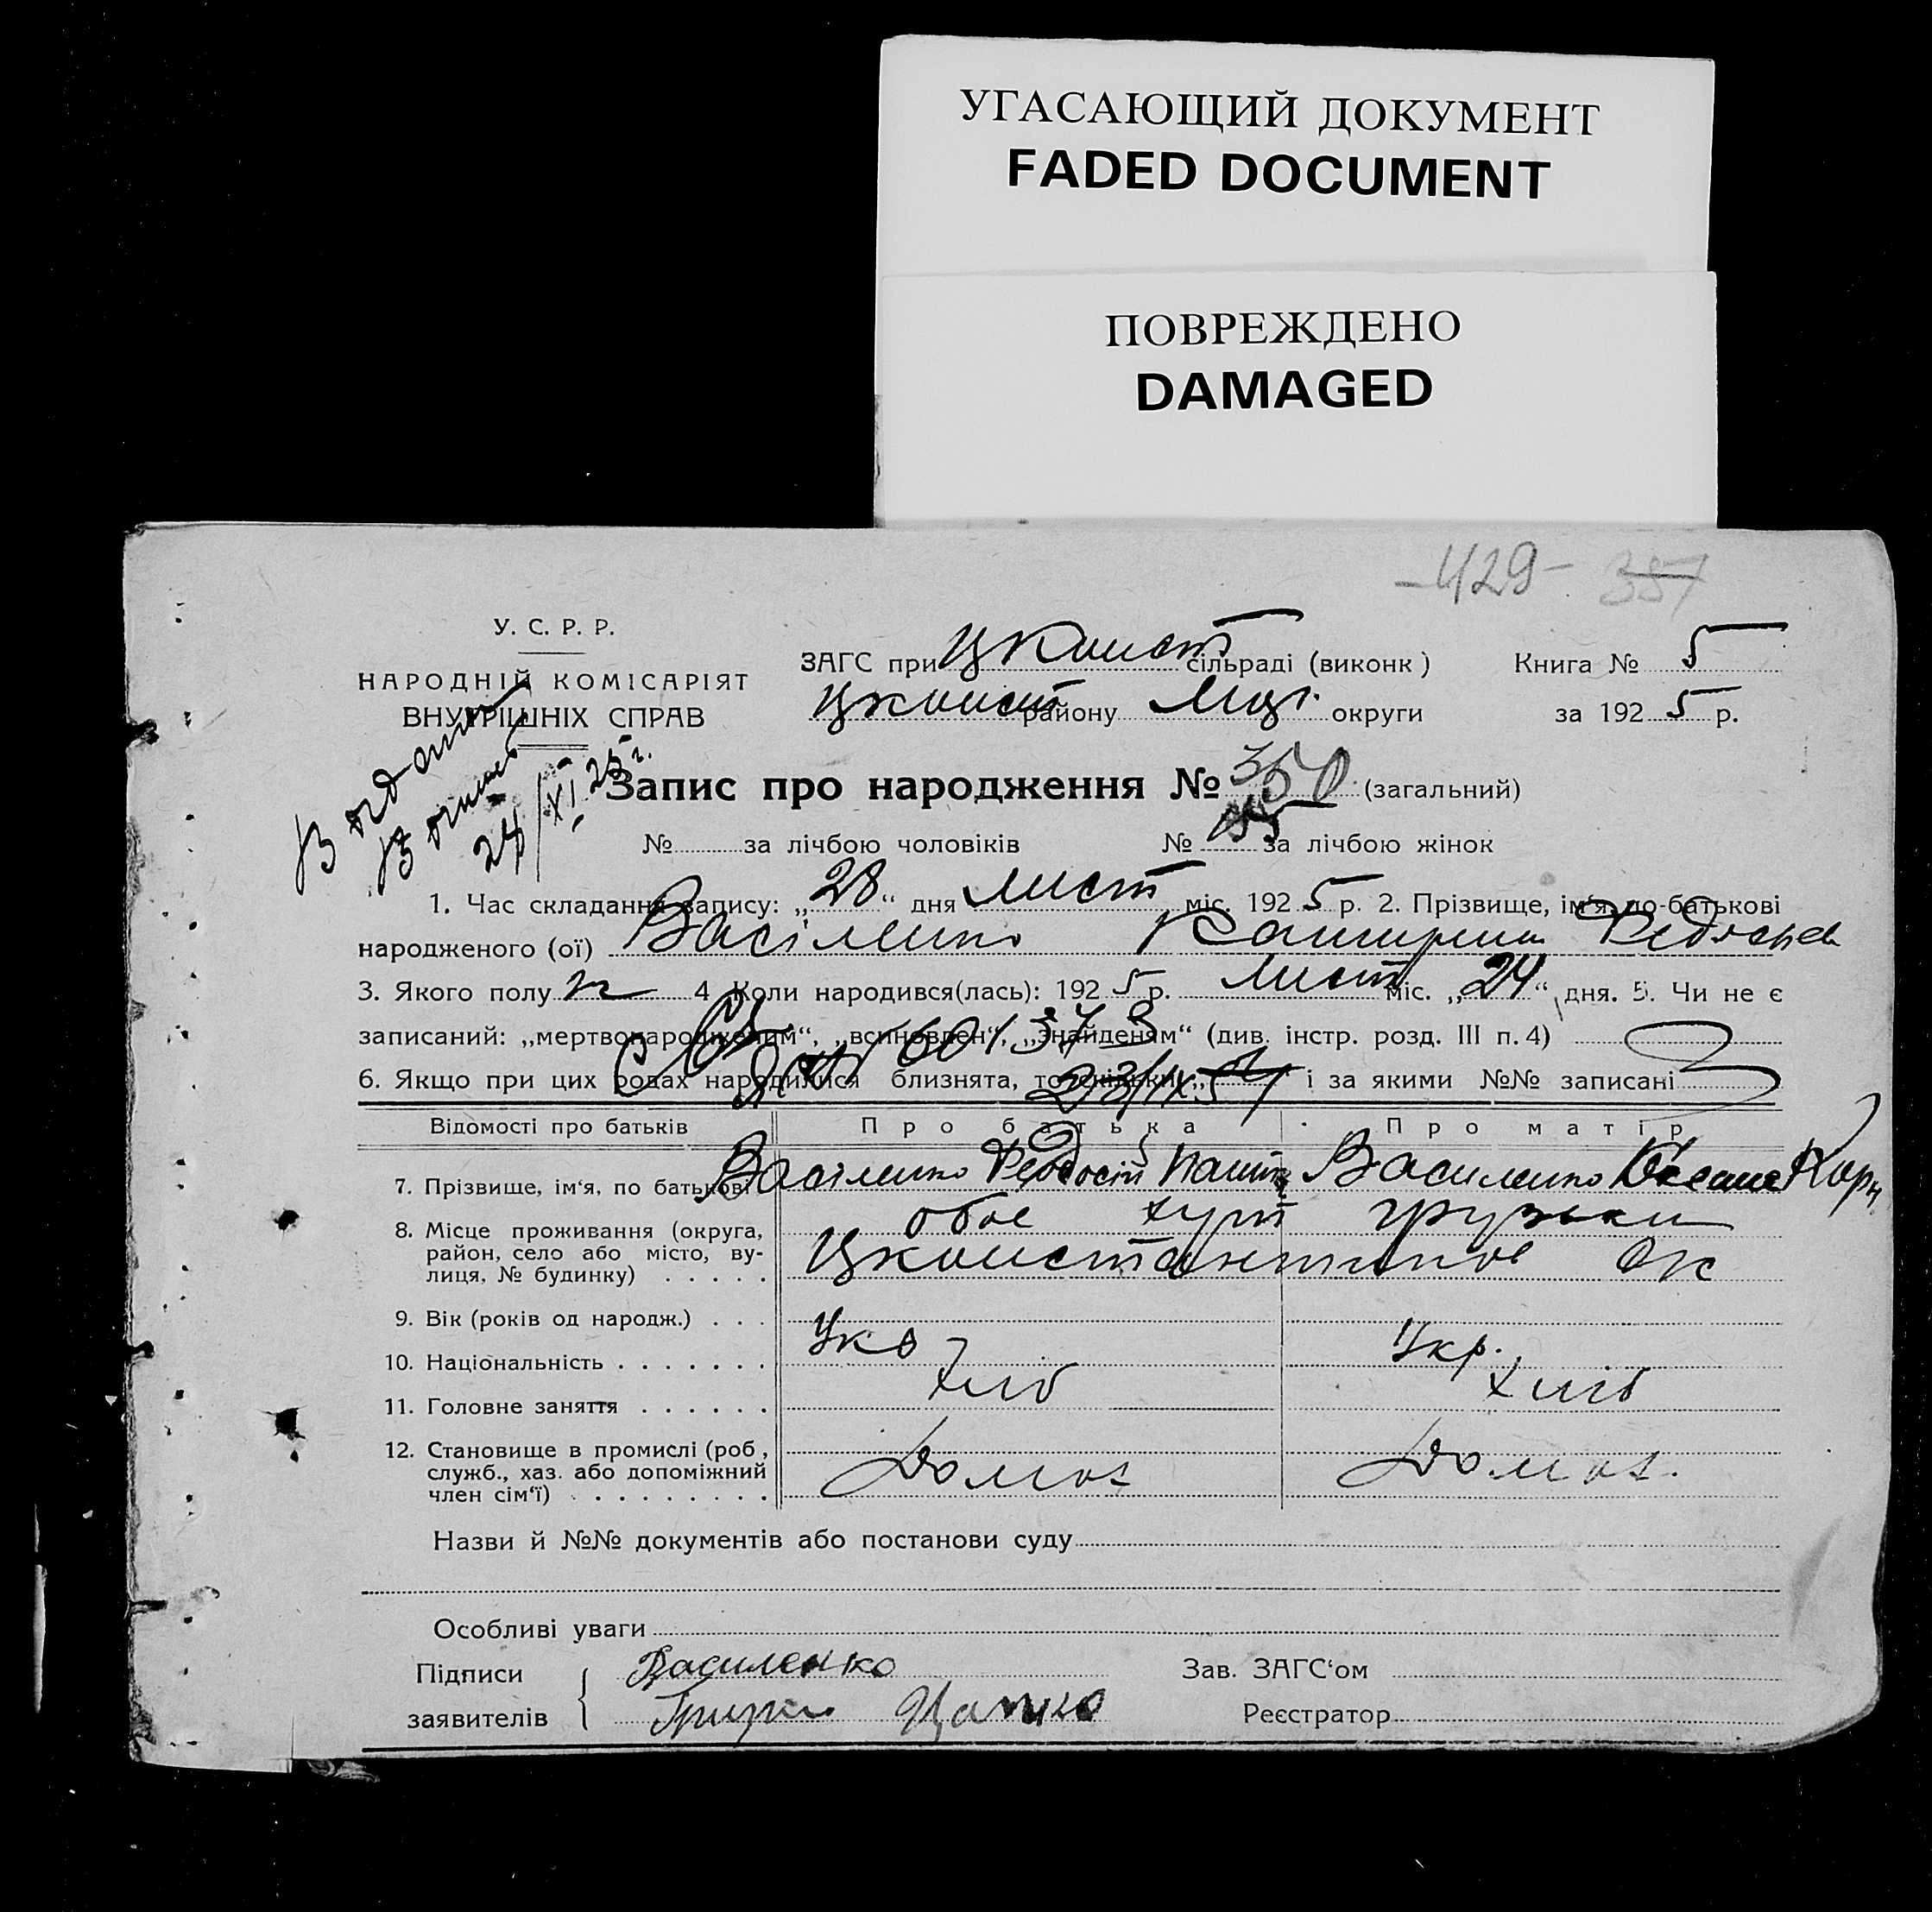 УГАСАЮЩИЙ ДОКУМЕНТ
FADED DOCUMENT
ПОВРЕЖДЕНО
DAMAGED
-429- 357
У. С. Р. Р.
НАРОДНІЙ КОМІСАРІЯТ
ВНУТРІШНІХ СПРАВ
ЗАГС при Цконст сільраді (виконк) Книга № 5
Цконст району округи за 1925 р.
24/XI 25 г.
Запис про народження № 350 (загальний)
№ за лічбою чоловіків № за лічбою жінок
1. Час складання запису: „28“ дня лист міс. 1925 р. 2. Прізвище, ім‘я, по-батькові
народженого (ої) Василенко
3. Якого полу 4. Коли народився(лась): 1925 р. лист міс. „24“ дня. 5. Чи не є
записаний: „мертвонародженим“, „всиновлен“, „знайденям“ (див. інстр. розд. III п. 4)
6. Якщо при цих родах народилися близнята, то скільки „ “ і за якими №№ записані
Відомості про батьків Про батька Про матір
7. Прізвище, ім‘я, по батькові Василенко Федосій Василенко Оксана Корн
8. Місце проживання (округа, обое хут грузьки
район, село або місто, ву- Цконстантинов ок
лиця, № будинку)
9. Вік (років од народж.)
10. Національність Укр Укр.
11. Головне заняття хліб хліб
12. Становище в промислі (роб., Домог Домог.
служб., хаз. або допоміжний
член сім‘ї)
Назви й №№ документів або постанови суду
Особливі уваги
Підписи Василенко Зав. ЗАГС‘ом
заявителів Реєстратор